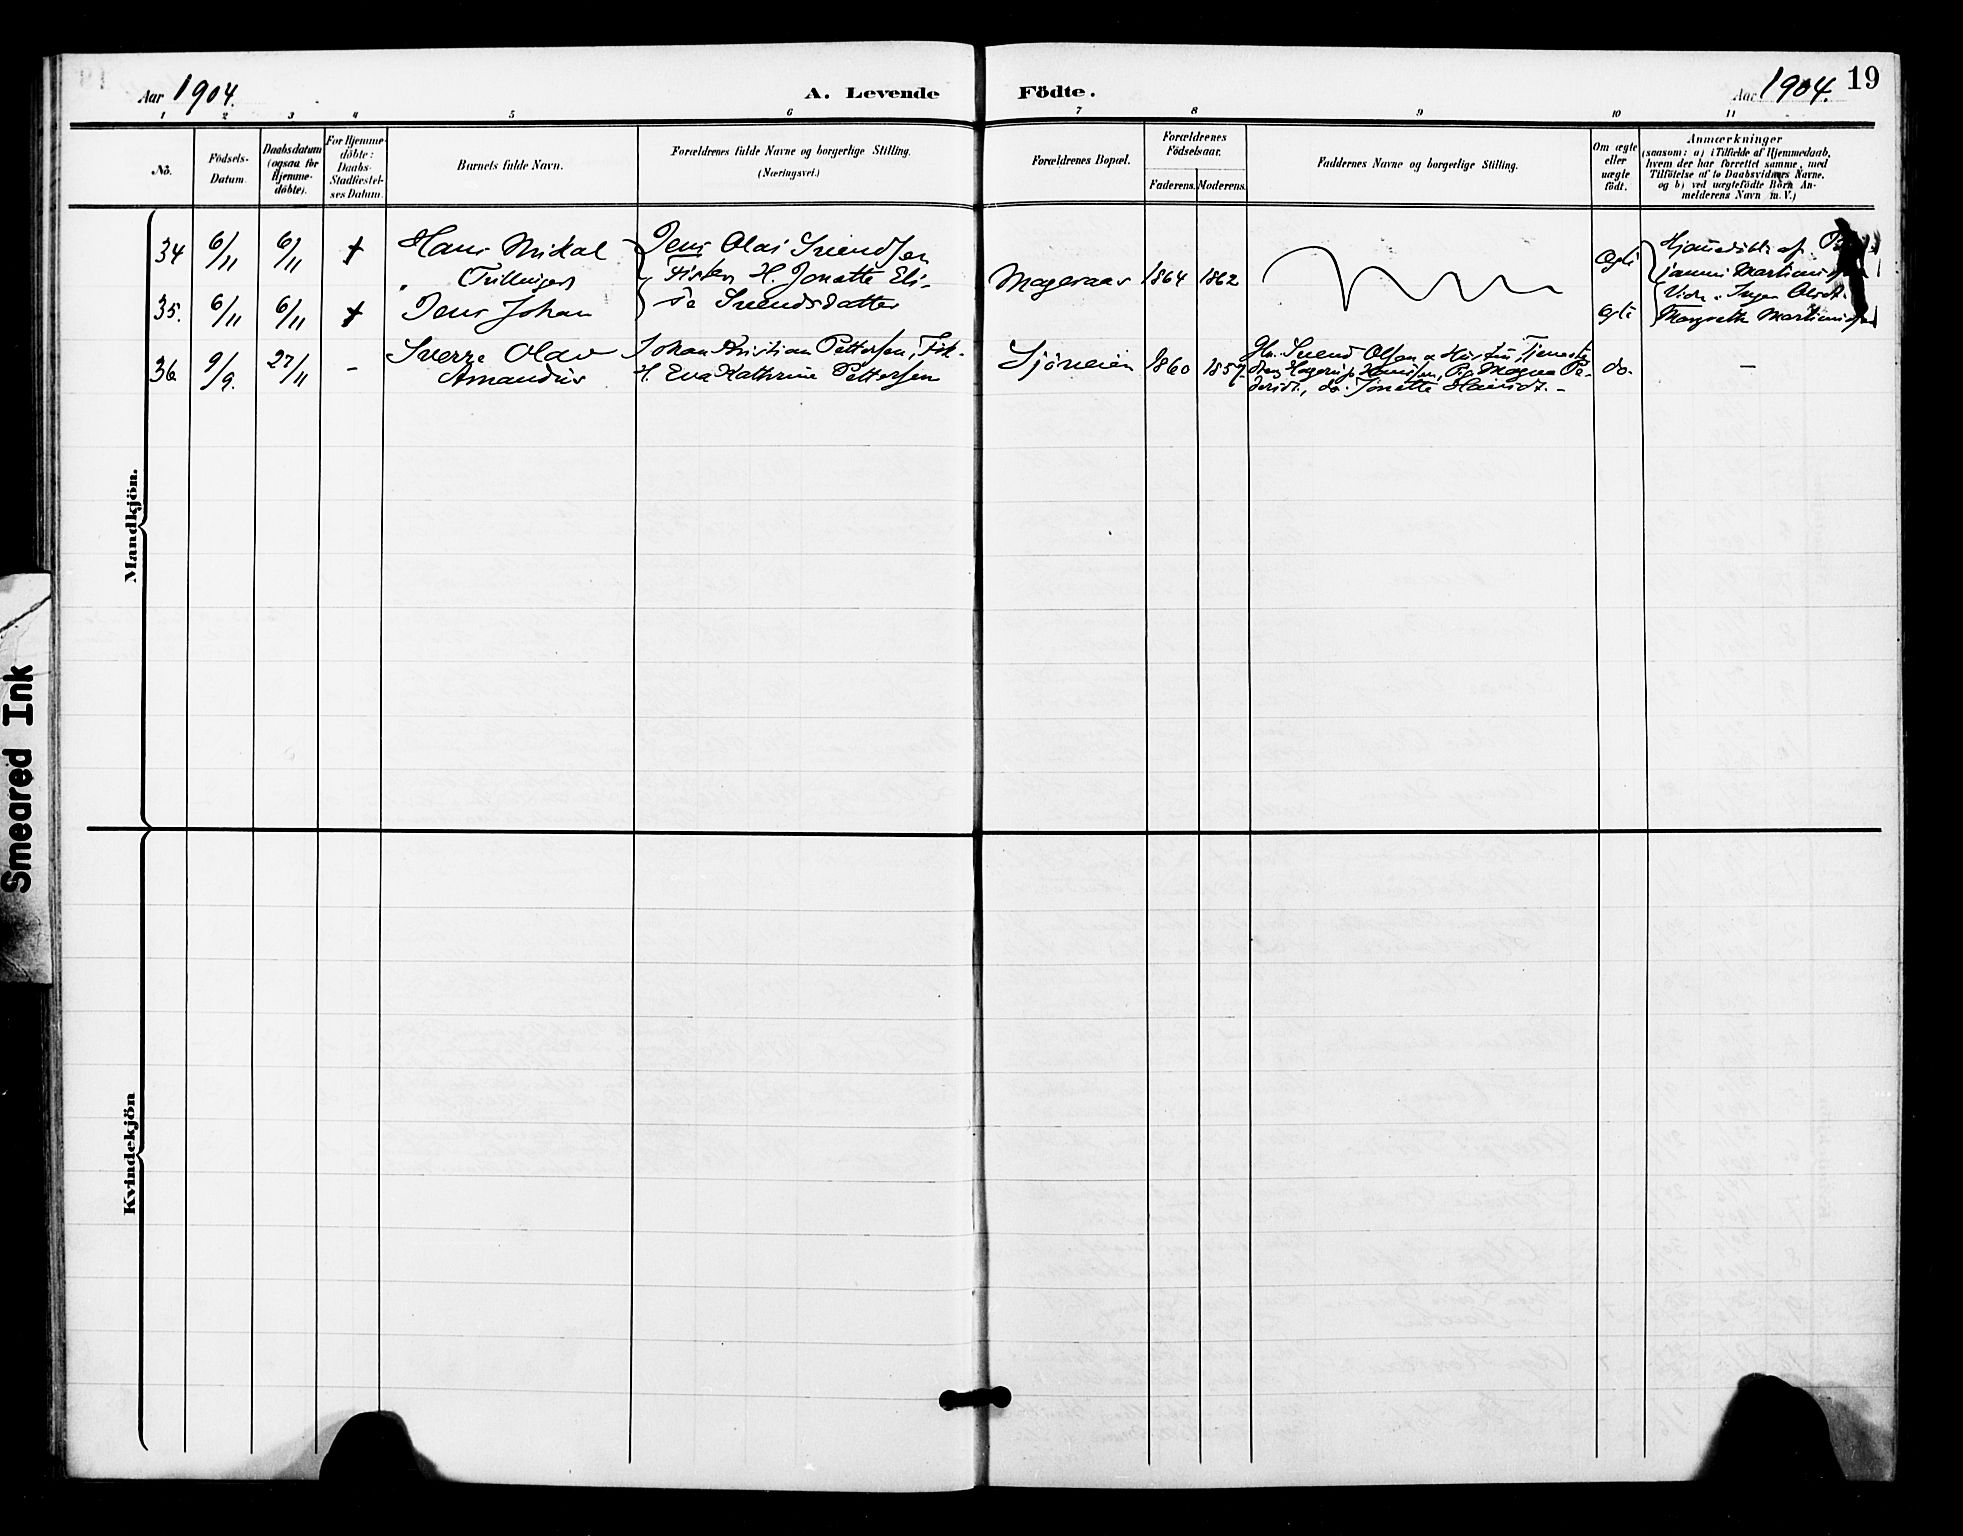 Aar 1904.
A. Levende
Födte.
Aar 1904.
19
1 2 3 4 5 6 7 8 9 10 11
No.
Födsels-
Datum.
Daabsdatum
(ogsaa for
Hjemme-
döbte).
For Hjemme-
döbte:
Daabs-
Stadfæstel-
ses Datum.
Barnets fulde Navn.
Forældrenes fulde Navne og borgerlige Stilling.
(Næringsvei.)
Forældrenes Bopæl.
Forældrenes
Födselsaar.
Faderens.
Moderens.
Faddernes Navne og borgerlige Stilling.
Om ægte
eller
uægte
födt.
Anmærkninger
(saasom: a) i Tilfælde af Hjemmedaab,
hvem der har forrettet samme, med
Tilföielse af to Daabsvidners Navne,
og b) ved uægtefödte Börn An-
melderens Navn m. V.)
Mandkjön.
34 6/11 6/11 + Hans Mikal
Trillinger
Jens Olai Svendsen
Fisker, H. Jonette Eli-
se Svendsdatter
Mageraas 1864 1862
Ægte
Hjemmedöbt af
Martinus
Vidn.: Inger Olsdt.
Margrethe
35. 6/11 6/11 + Jens Johan
Ægte
36 9/9. 27/11 - Sverre Olav
Amandus
Johan Kristian Pettersen, Fisk.
H. Eva Kathrine Pettersen
Sjöneien 1860 1857
Svend Olsen og Hustru, Tjeneste-
dreng Hagerup Hansen, Pg. Magna Pe-
dersdt., do. Jonette Hansdt. -
do. -
Kvindekjön
Smeared Ink